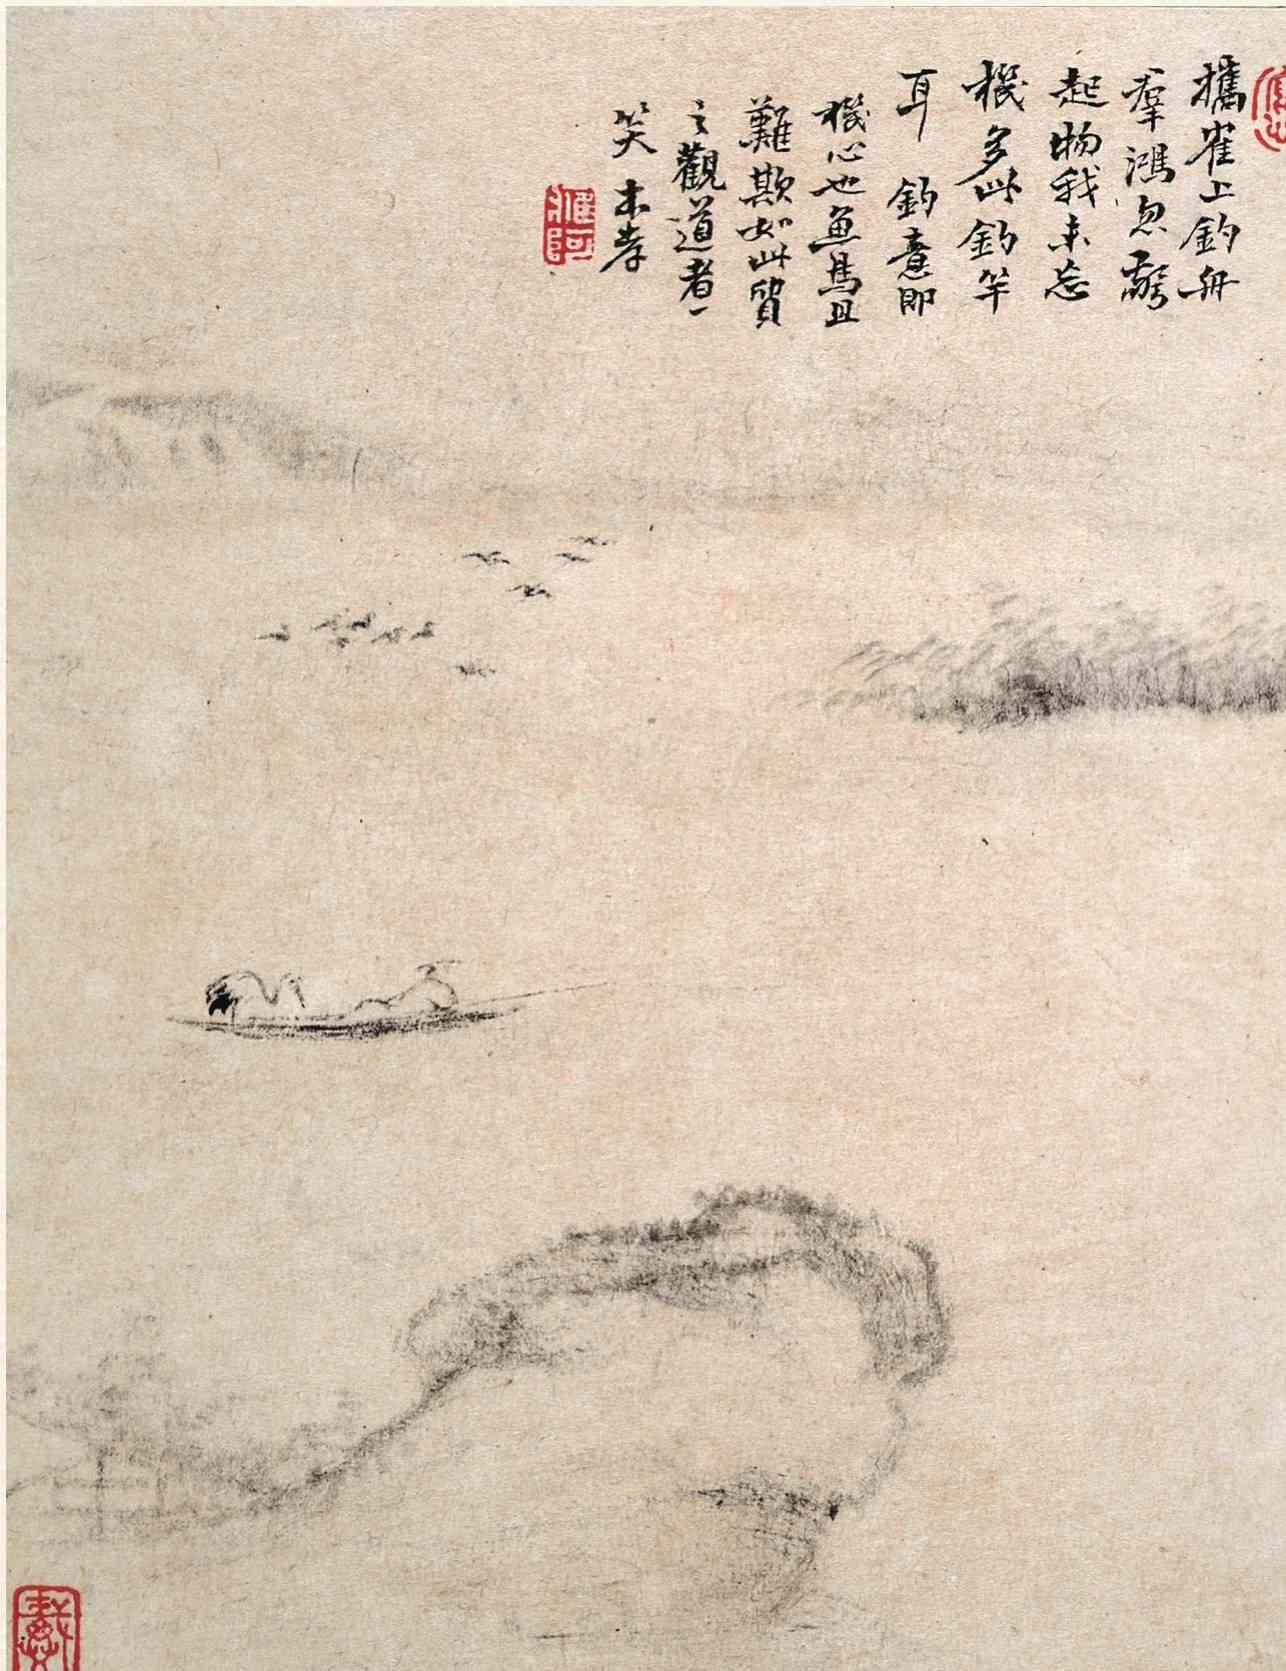 攜隺上釣舟
羣鴻忽驚
起物我未忘
機多此釣竿
耳 釣意即
機心也魚鳥且
難欺如此質
之觀道者一
笑 木孝